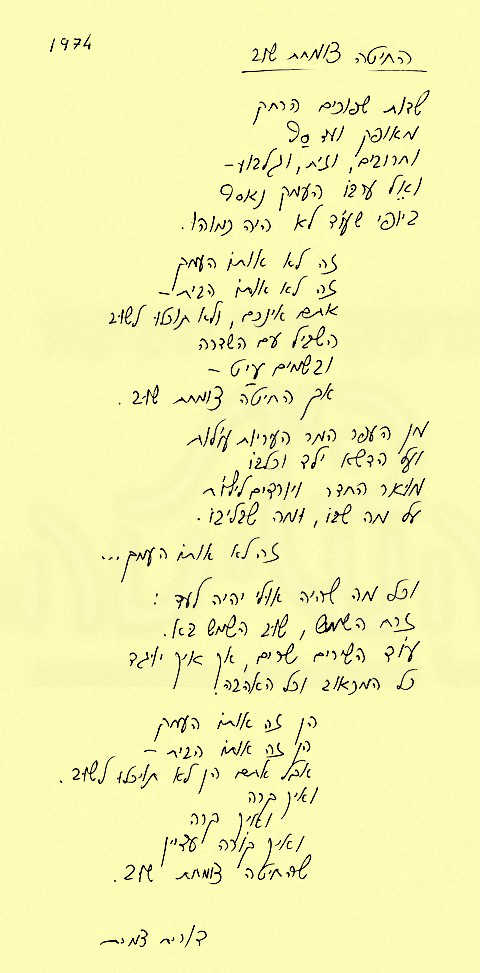 1974
החיטה צומחת שוב
שדות שפוכים הרחק
מאופק ועד סף
וחרובים, וזית, וגלבוע –
ואל ערבו העמק נאסף
ביופי שעוד לא היה כמוהו.
זה לא אותו העמק
זה לא אותו הבית –
אתם אינכם, ולא תוכלו לשוב
השביל עם השדרה
ובשמים עיט –
אך החיטה צומחת שוב.
מן העפר המר העיריות עולות
ועל הדשא ילד וכלבו
מואר החדר ויורדים לילות
על מה שבו, ומה שבליבו.
זה לא אותו העמק...
וכל מה שהיה אולי יהיה לעד :
זרח השמש, שוב השמש בא.
עוד השירים שרים, אך איך יוגד
כל המכאוב וכל האהבה?
הן זה אותו העמק
הן זה אותו הבית –
אבל אתם הן לא תוכלו לשוב.
ואיך קרה
ואיך קרה
ואיך קורה עדיין
שהחיטה צומחת שוב.
דורית צמרת